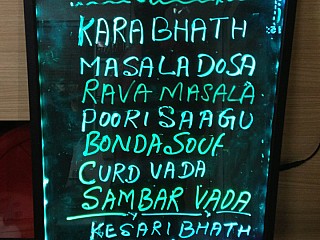 KARA BHATH
MASALA DOSA
RAVA MASALA
POORI SAAGU
BONDA SOUF
CURD VADA
SAMBAR VADA
KESARI BHATH